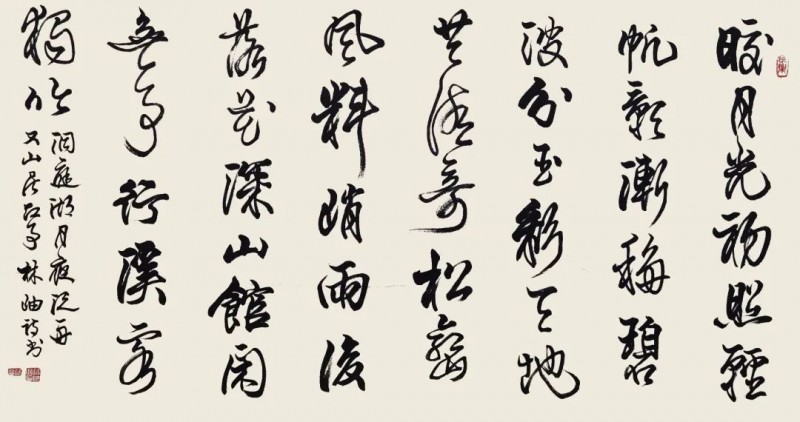 皎月光初照輕
帆影漸移碧
波分玉彩天地
共清奇松壑
風料峭雨後
落花深山館閑
無事行溪客
獨吟 洞庭湖月夜泛舟
又山居即事 林岫詩書